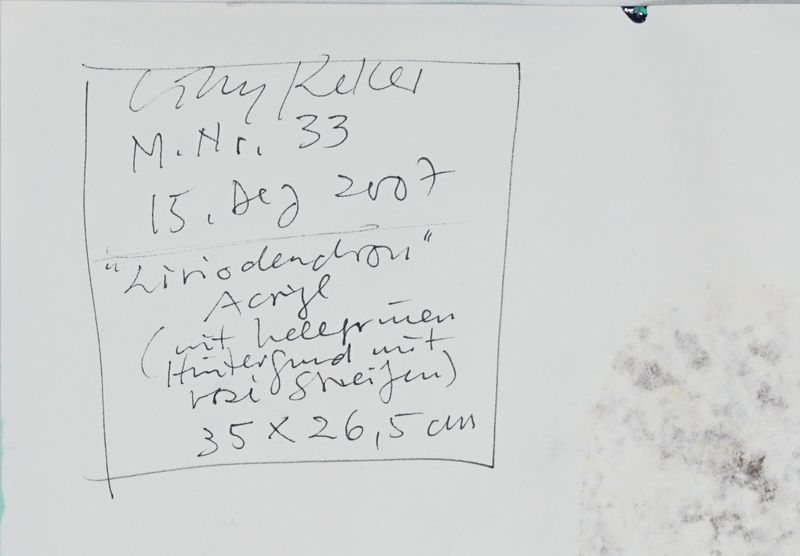 Reker
M. Nr. 33
15. Dez 2007
"Liriodendron"
Acryl
(mit hellgrünen
Hintergrund mit
rosa Streifen)
35 x 26,5 cm